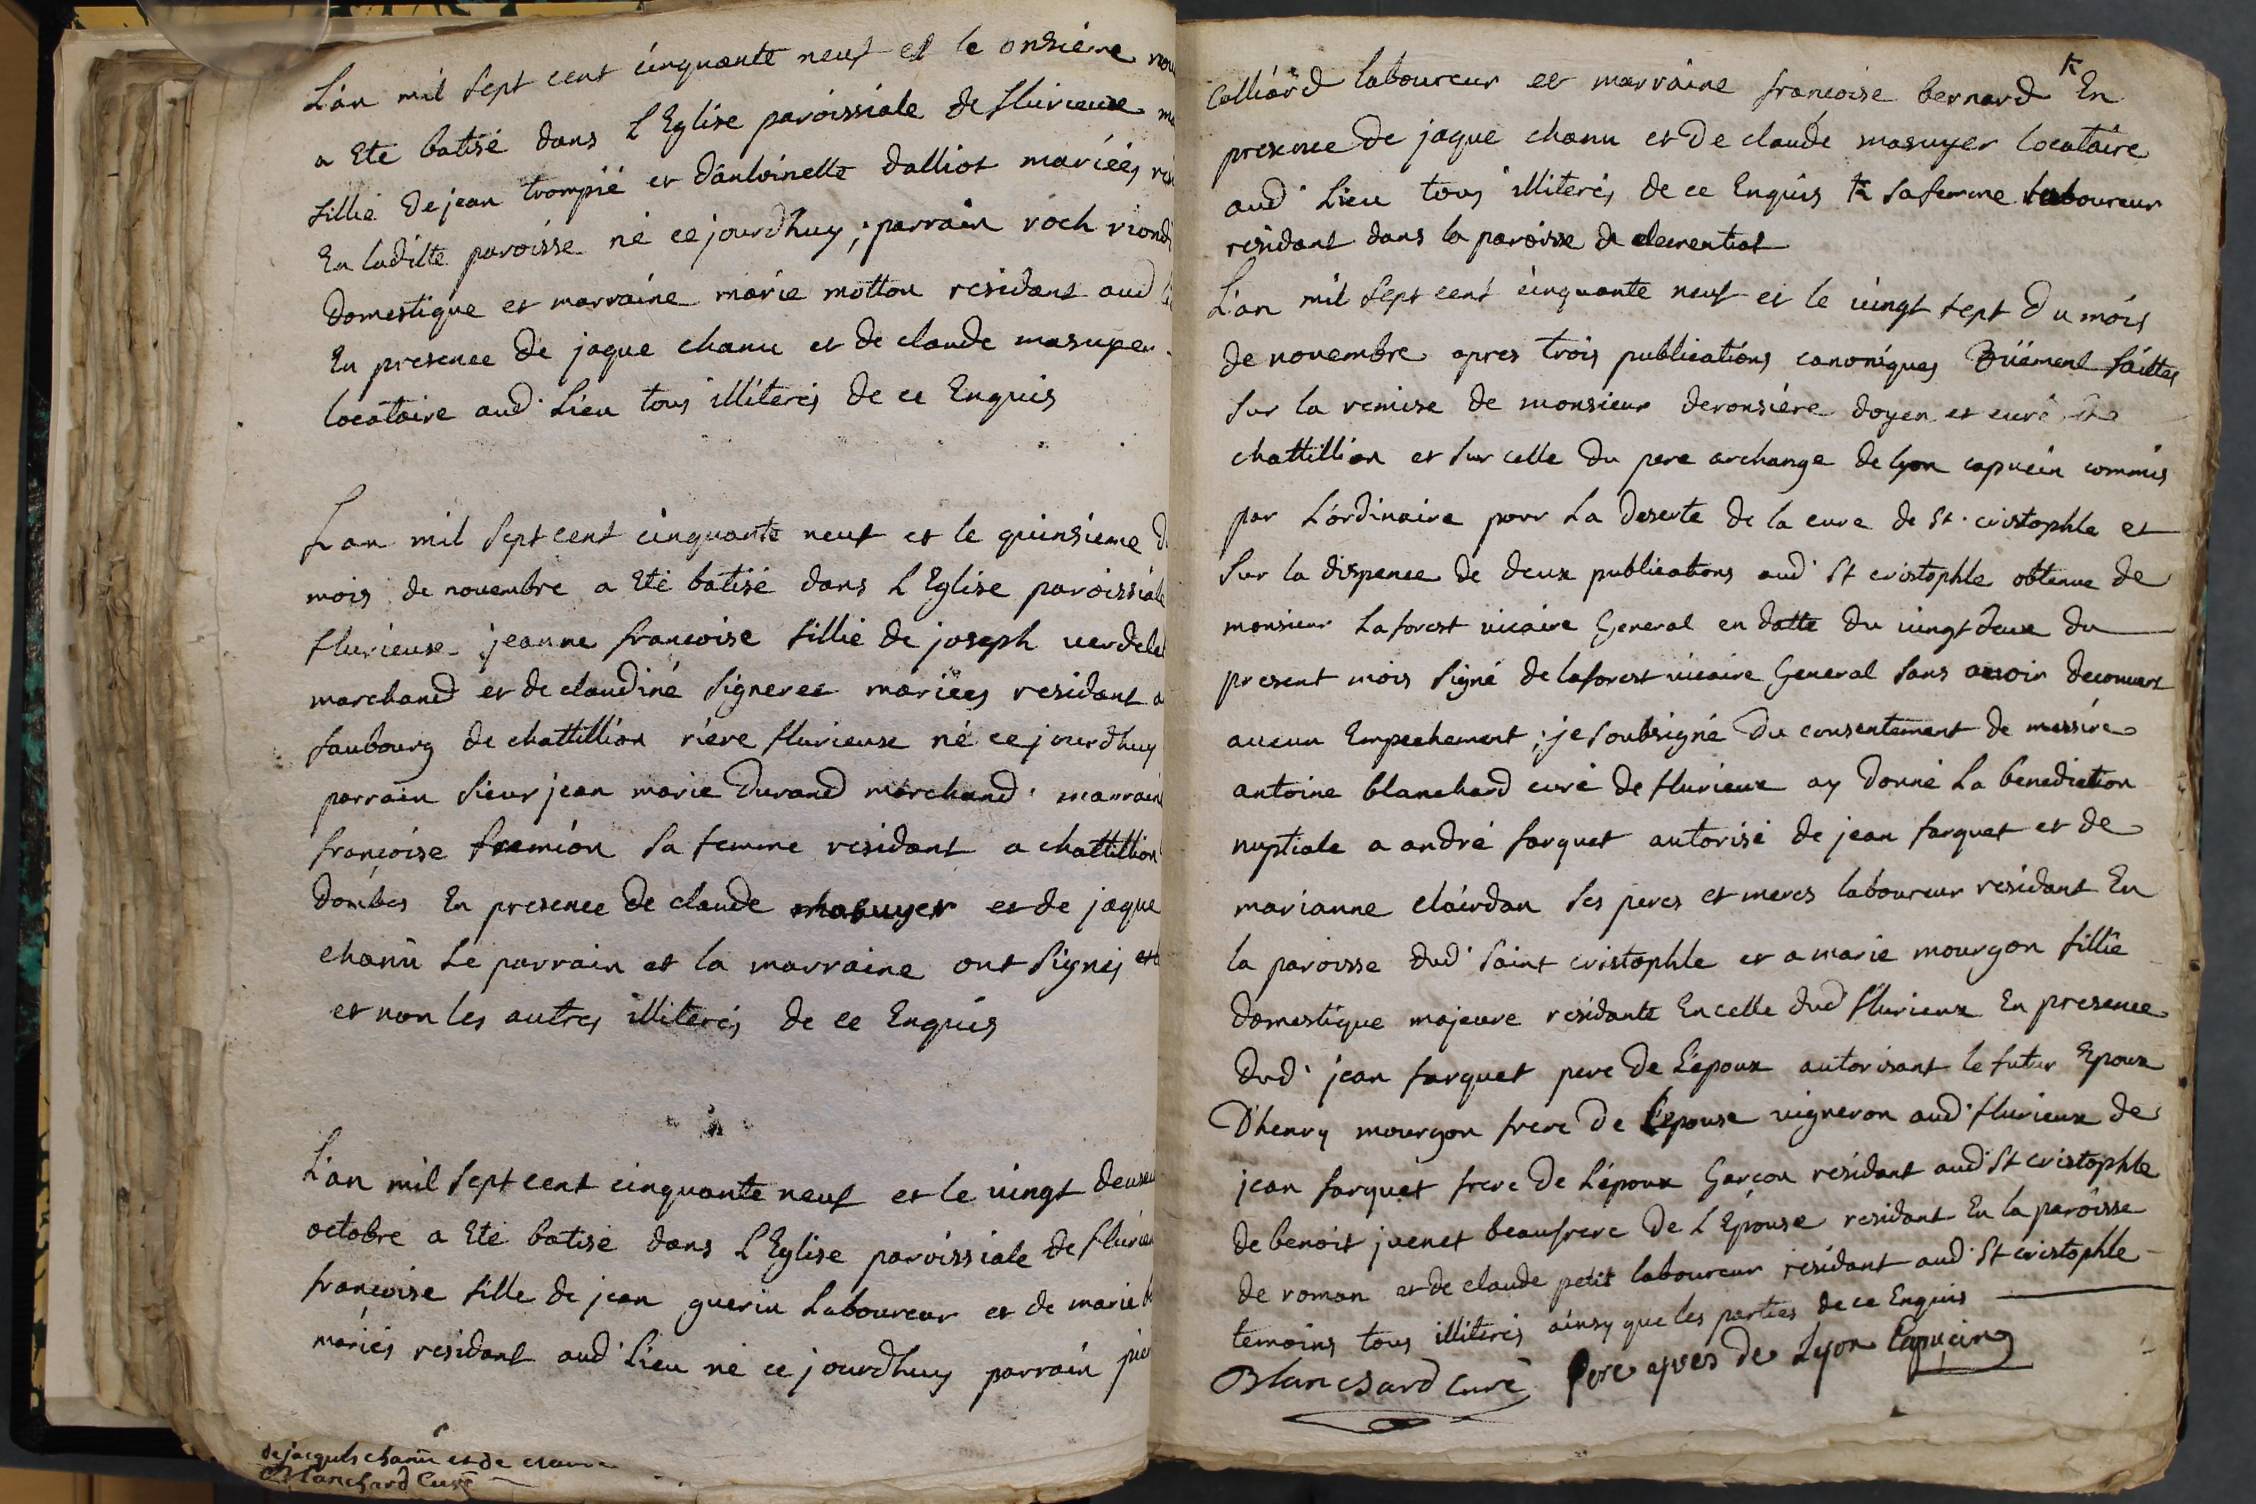 L'an mil sept cent cinquante neuf et le onsiéme
a Eté batisé dans L'Eglise paroissiale de flurieuxe
fillie de jean trompié et d'antoinette dalliot mariéés
En laditte paroisse né ce jourdhuy, parrain roch
domestique et marraine marie motton residant aud
En presence de jaque chanu et de claude masuyer
locataire aud. Lieu tous illiterés de ce Enquis
L'an mil sept cent cinquante neuf et le quinsieme
mois de novembre a Eté batisé dans L'Eglise paroissiale
flurieuxe jeanne francoise fillie de joseph
marchand et de claudiné signeret mariées residant
faubourg de chattillion riere flurieuxe né ce jourdhuy
parrain sieur jean marie Durand marchand. marraine
francoise fremion sa femme residant a chattillion
dombes En presence de claude masuyer et de jaque
chanū Le parrain et la marraine ont signés
et non les autres illiterés de ce Enquis
L'an mil sept cent cinquante neuf et le vingt
octobre a Eté batisé dans L'Eglise paroissiale de
francoise fille de jean guerin Laboureur et de marie
mariés residant aud. Lieu né ce jourdhuy parrain
de jacques chanū et de
Blanchard Curé
Colliard laboureur et marraine francoise bernard En
presence de jaque chanu et De claude masuyer locataire
aud. Lieu tous illiterés de ce Enquis sa femme laboureur
residant dans la paroisse de
L'an mil sept cent cinquante neuf et le vingt sept Du mois
de novembre apres trois publications canoniques Duëment faittes
sur la remise de monsieur deronsiére doyen et curé de
chattillion et sur celle du pere archange de lyon capucin commis
par L'ordinaire pour La Deserte de la cure de St. cristophle et
Sur la dispence de deux publications aud. St cristophle obtenue de
monsieur Laforest vicaire General en datte du vingt deux du
present mois signé de laforest vicaire General sans avoir decouvert
aucun Empechement ; je soubsigné Du consentement de messire
antoine blanchard curé de flurieux ay Donné La benediction
nuptiale a andré farguet autorisé de jean farguet et de
marianne clairdan ses peres et meres laboureur residant En
la paroisse dud. saint cristophle et a marie mourgon fillie
domestique majeure residante En celle dud. flurieux En presence
dud. jean farguet pere de L'époux autorisant le futur Epoux
D'henry mourgon frere De L'épouse vigneron aud. flurieux de
jean farguet frere de L'époux Garçon residant aud. St cristophle
de benoit juenet beaufrere de L'Epouse residant En la paroisse
de roman et de claude petit laboureur residant aud. St cristophle
temoins tous illiterés ainsy que les parties de ce Enquis
Blanchard Curé Pere de Lyon Capucin